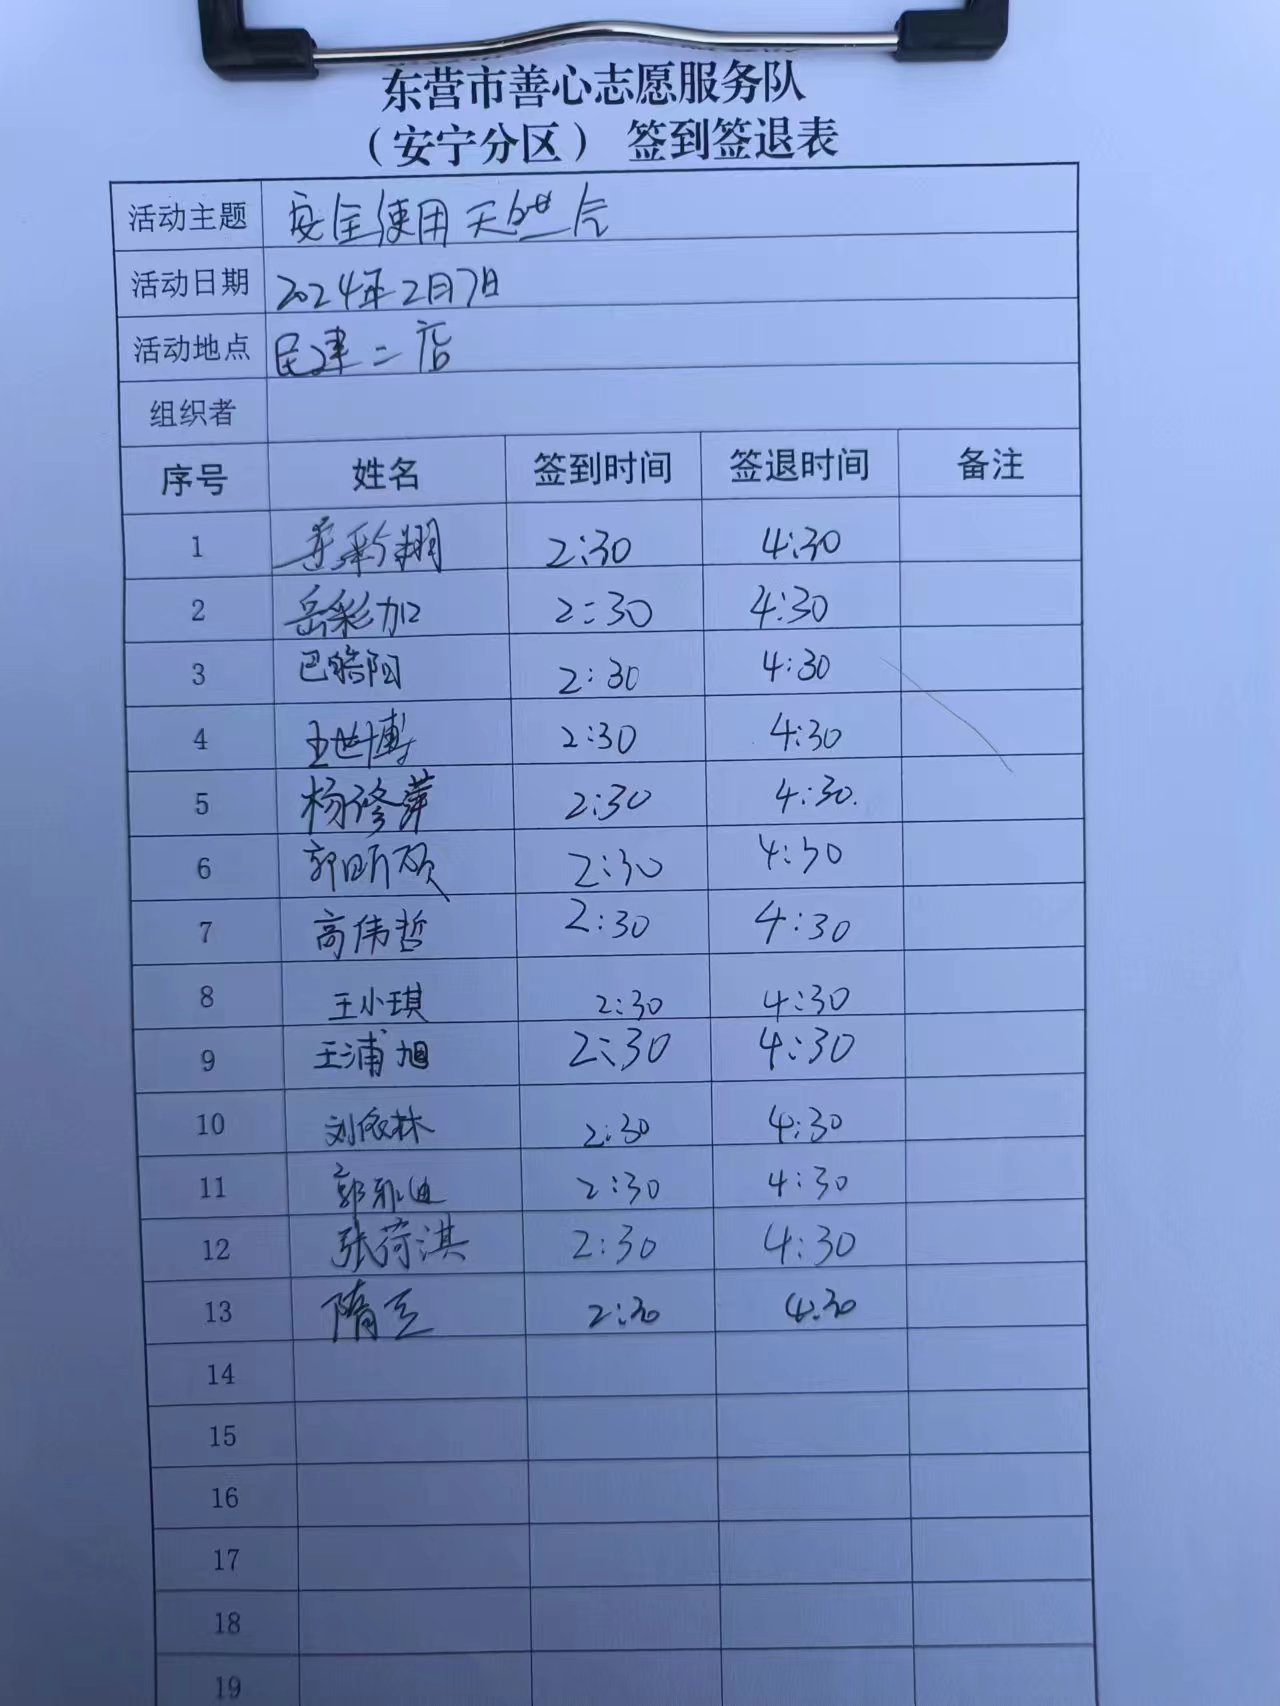 东营市善心志愿服务队
（安宁分区） 签到签退表
活动主题 安全使用天然气
活动日期 2024年2月7日
活动地点 民建二店
组织者
序号 姓名 签到时间 签退时间 备注
1 彩翔 2:30 4:30
2 岳彩加 2:30 4:30
3 巴皓阳 2:30 4:30
4 王世博 2:30 4:30
5 杨修萍 2:30 4:30.
6 郭昕硕 2:30 4:30
7 高伟哲 2:30 4:30
8 王小琪 2:30 4:30
9 王浦旭 2:30 4:30
10 刘依林 2:30 4:30
11 郭迪 2:30 4:30
12 张荷淇 2:30 4:30
13 隋 2:30 4:30
14
15
16
17
18
19